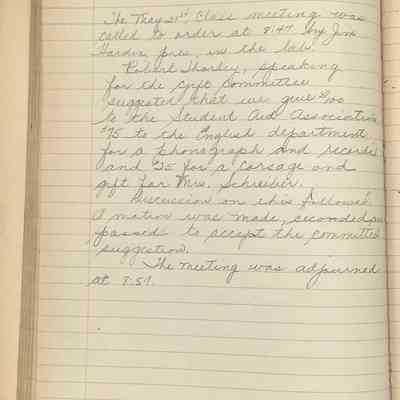 The May 21st, Class meeting was
called to order at 8:47 by Jim
Hardin, pres, in the lab.
Robert Thorley, speaking
for the gift committee
suggested that we give $100
to the Student Aid Association
$75 to the English department
for a phonograph and records
and $25 for a corsage and
gift for Mrs. Schreiber.
Discussion on this followed.
A motion was made, seconded
passed to accept the committee
suggestion.
The meeting was adjourned
at 8:57.